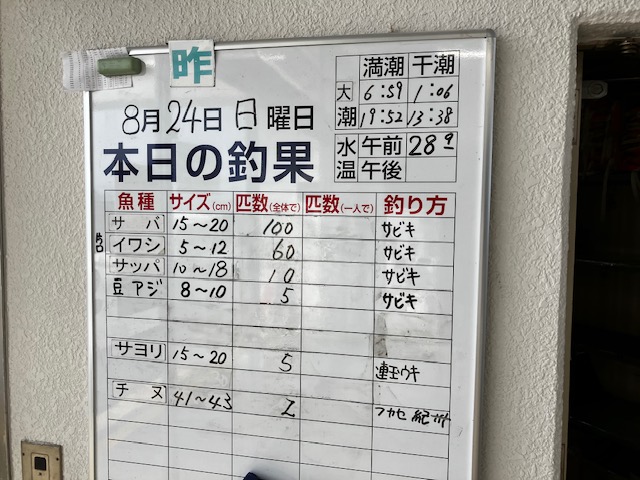 昨
満潮 干潮
大潮 6:59 1:06
19:52 13:38
水温 午前 28.9
午後
8月24日 日曜日
本日の釣果
魚種 サイズ(cm) 匹数(全体で) 匹数(一人で) 釣り方
サバ 15～20 100 サビキ
イワシ 5～12 60 サビキ
サッパ 10～18 10 サビキ
豆アジ 8～10 5 サビキ
サヨリ 15～20 5 連玉ウキ
チヌ 41～43 2 フカセ